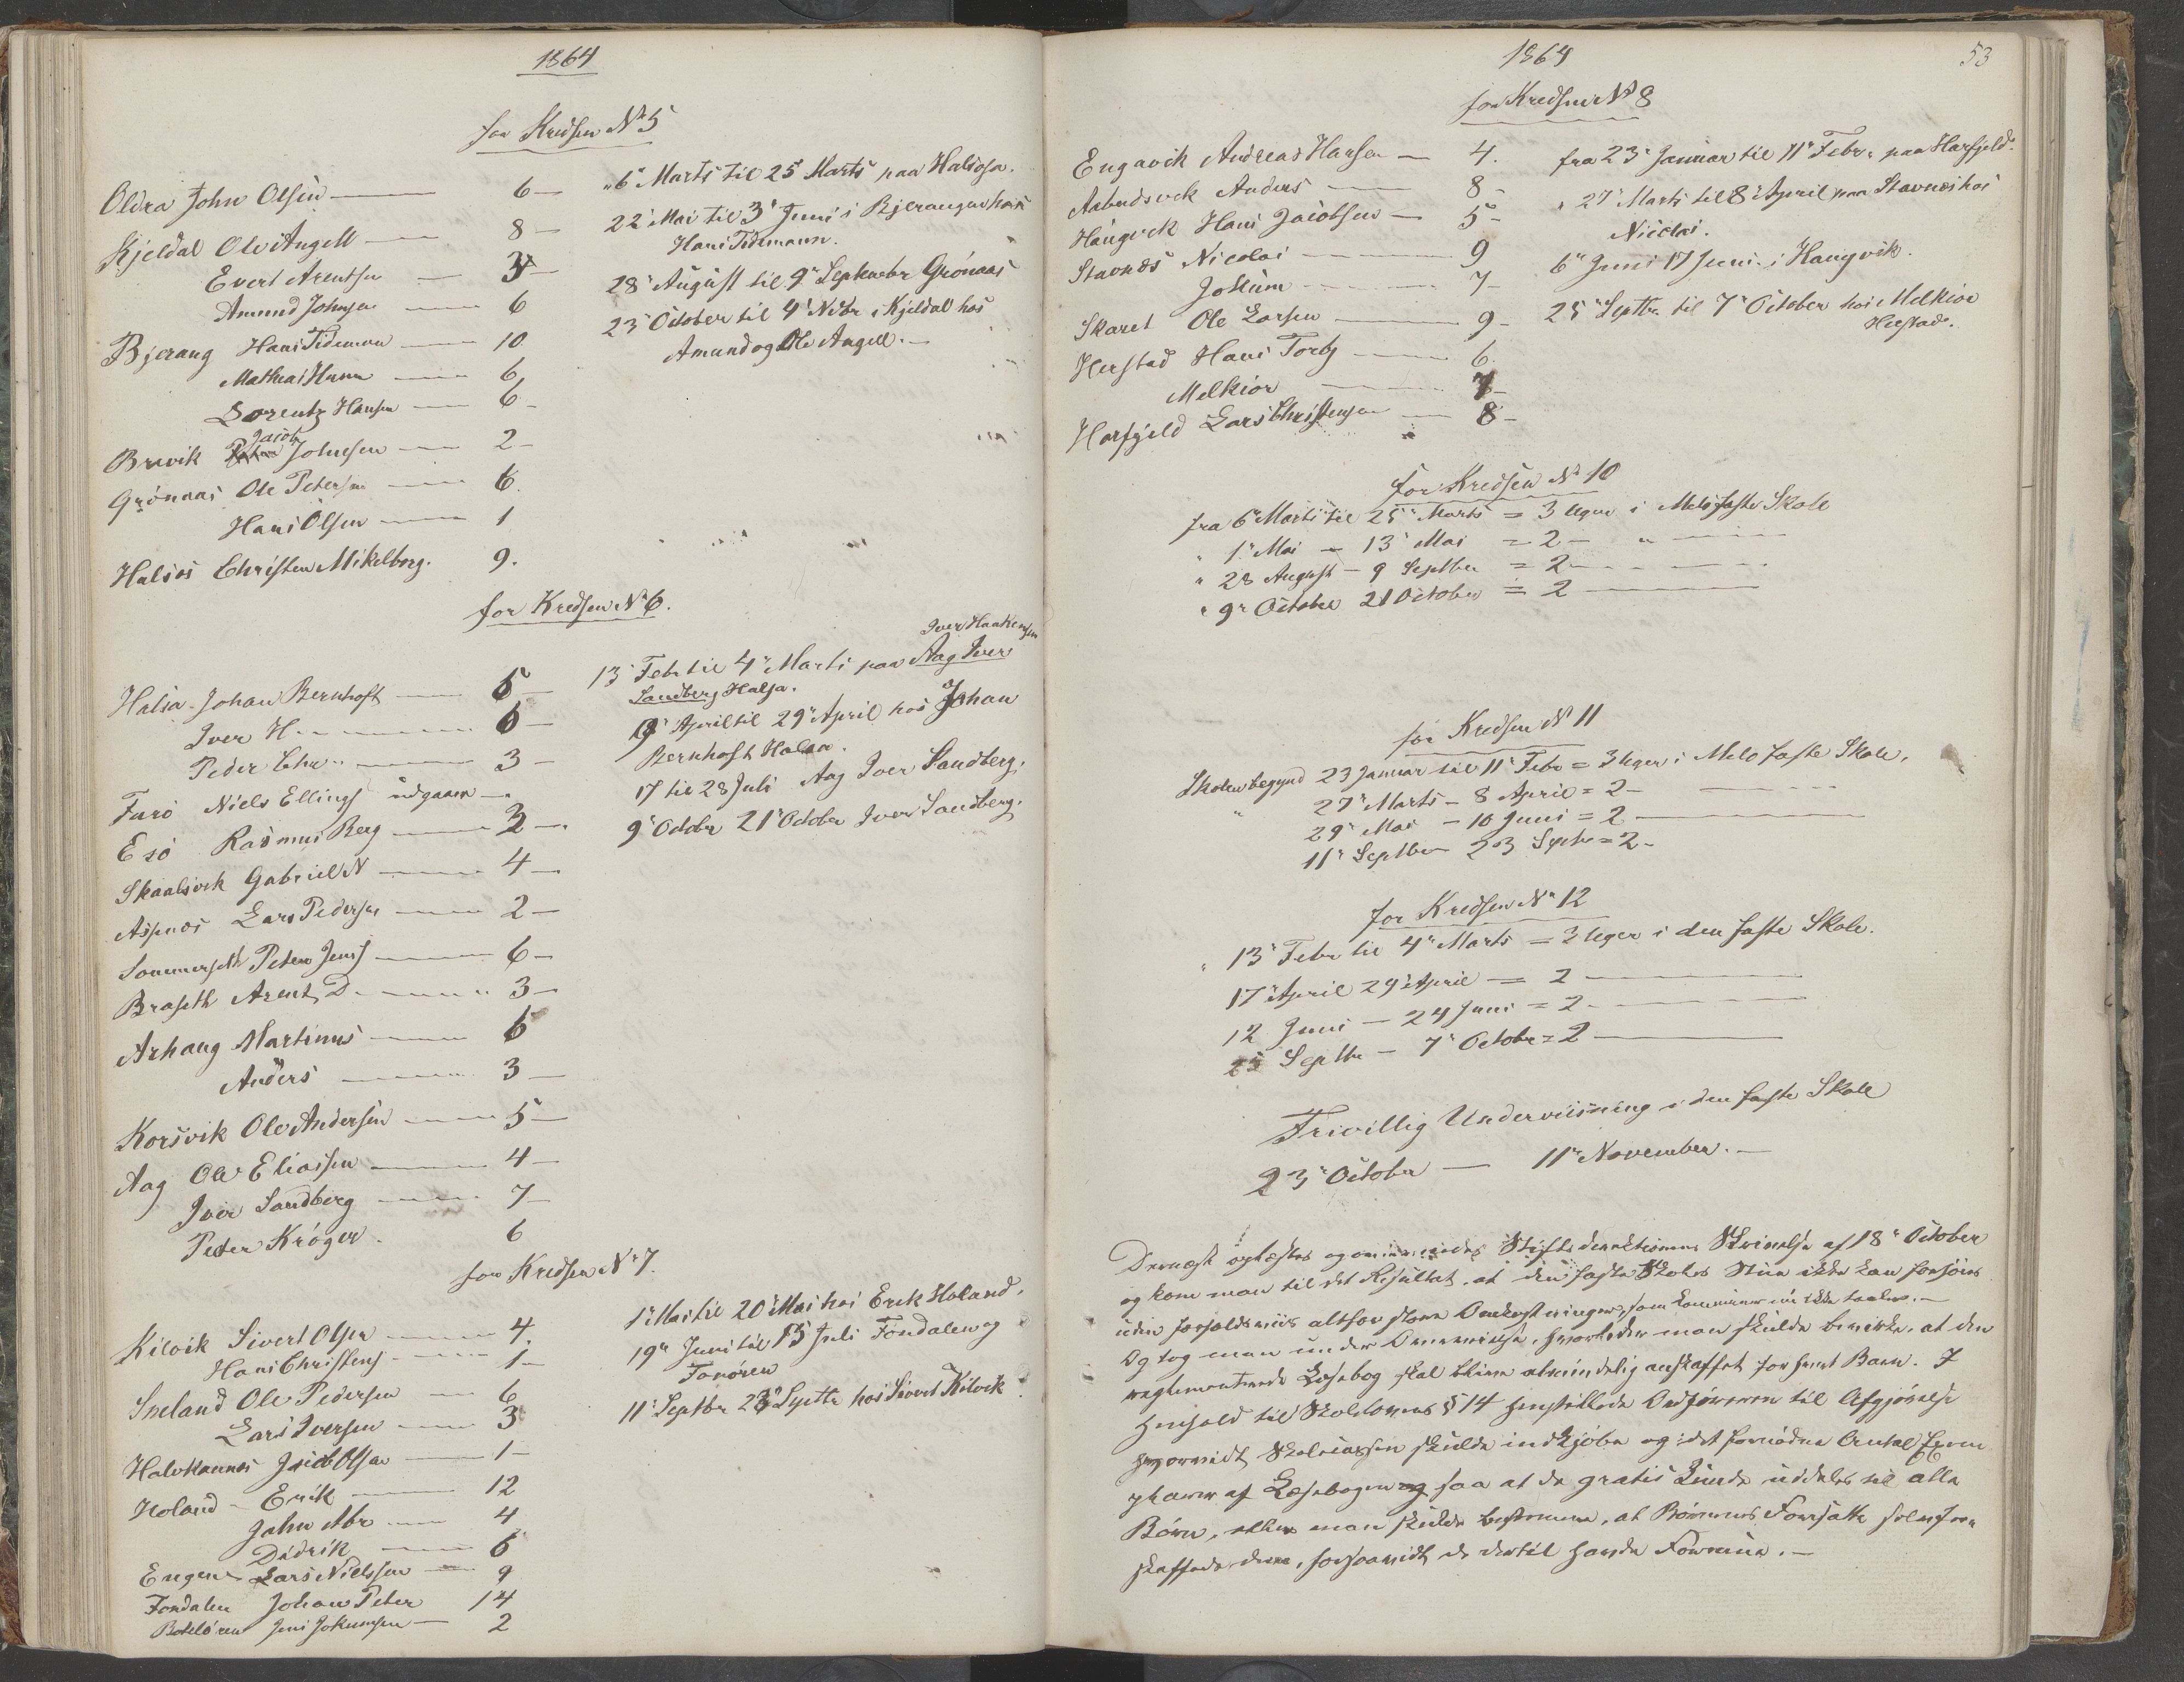 1864
for Kredsen No 5
Oldra John Olsen — 6 —
Kjeldal Ole Angell — 8 —
Evert Arentsen — 3 —
Amund Johnsen — 6
Bjerang Hans Tidemann — 10
Mathias Hansen — 6
Lorentz Hansen — 6 —
Jacob
Brevik Johnsen — 2 —
Grönnaas Ole Petersen — 6.
Hans Olsen — 1
Halsos Christen Mikelborg. 9.
"6" Marts til 25 Marts paa Halsosa.
22" Mai til 3" Juni i Bjerangen hos
Hans Tidemann.
28" August til 9" September Grönaas
23" October til 4" Novbr i Kjeldal hos
Amund og Ole Angell. —
for Kredsen No 6.
Halsa Johan Bernhoft — 5 —
Iver H — 6 —
Peder Chr — 3 —
Farö Niels Ellings udgaaen —
Esö Rasmus Berg — 3 —
Skaalsvik Gabriel N — 4 —
Aspnes Lars Pedersen — 2 —
Sommerseth Peter Jens — 6 —
Braseth Arent D. — 3 —
Arhaug Martinus — 6
Anders — 3 —
Korsvik Ole Andersen — 5 —
Aag Ole Eliassen — 4 —
Iver Sandberg — 7 —
Peter Kröger. 6
Iver Haakensen
13" Febr til 4" Marts paa Aag Iver
Sandberg Halsa.
April til 29" April hos Johan
Bernhoft Halsa.
17 til 28 Juli Aag Iver Sandberg.
9" Octobr 21" Octobr Iver Sandberg.
for Kredsen No 7.
Kilvik Sivert Olsen — 4.
Hans Christens — 1 —
Sneland Ole Pedersen — 6
Lars Iversen — 3
Halvkannes Jacob Olsen — 1 —
Holand — Erik — 12
John Abr — 4
Didrik — 6
Engen Lars Nielssen — 9
Fondalen Johan Peter 14
Jens Jokumsen — 2
1" Mai til 20" Mai hos Erik Holand.
19" Juni til 15 Juli Fondalen og
Fonören
11" Septbr 23" Septbr hos Sivert Kilvik
1864
53
for Kredsen No 8
Engavik Andreas Hansen — 4.
Aabudsvik Anders — 8 —
Hangvik Hans Jacobsen — 5 —
Stavnes Nicolai — 9
Jokum — 7 —
Skaret Ole Larsen — 9 —
Herstad Hans Torb — 6.
Melkior — 7 —
Harfjeld Lars Christensen — 8 —
fra 23" Januar til 11" Febr. paa Harfjeld.
" 27" Marts til 8" April paa Stavnes hos
Nicolai.
6" Juni 17 Juni i Hangvik.
25" Septbr. til 7" October hos Melkior
Herstad.
for Kredsen No 10
fra 6" Marts til 25" Marts = 3 Uger i Melö faste Skole
" 1" Mai — 13" Mai = 2 — " —
" 28 August — 9 Septbr = 2 —
" 9" Octobr 21 October = 2 —
for Kredsen No 11
Skolen begynd 23 Januar til 11" Febr = 3 Uger i Melö faste Skole.
" 27" Marts — 8 April = 2 —
29" Mai — 10 Juni = 2 —
11" Septbr — 23 Septr = 2 —
for Kredsen No 12
" 13" Febr til 4" Marts = 3 Uger i den faste Skole.
17" April 29" April = 2 —
12 Juni — 24 Juni = 2 —
25 Septbr — 7" Octobr = 2 —
Frivillig Underviisning i den faste Skole
23" October — 11" November. —
Dernæst oplæstes og Stiftsdirektionens Skrivelse af 18" October
og kom man til det Resultat, at den faste Skoles Stue ikke kan
uden forholdsviis altfor store Omkostninger, som Kommunen nu ikke taaler. —
Og tog man under Overveielse, hvorledes man skulde bevirke, at den
reglementerede Læsebog skal blive almindelig anskaffet for hvert Barn. I
Henhold til Skolelovens § 14 henstillede Ordföreren til Afgjörelse
hvorvidt Skolekassen skulde indkjöbe og det fornödne Antal Exem
plarer af Læsebogen og saa at de gratis kunde uddeles til alle
Börn, eller man skulde bestemme, at Börnenes Foresatte selv
skaffede dem, forsaavidt de dertil havde Formue. —